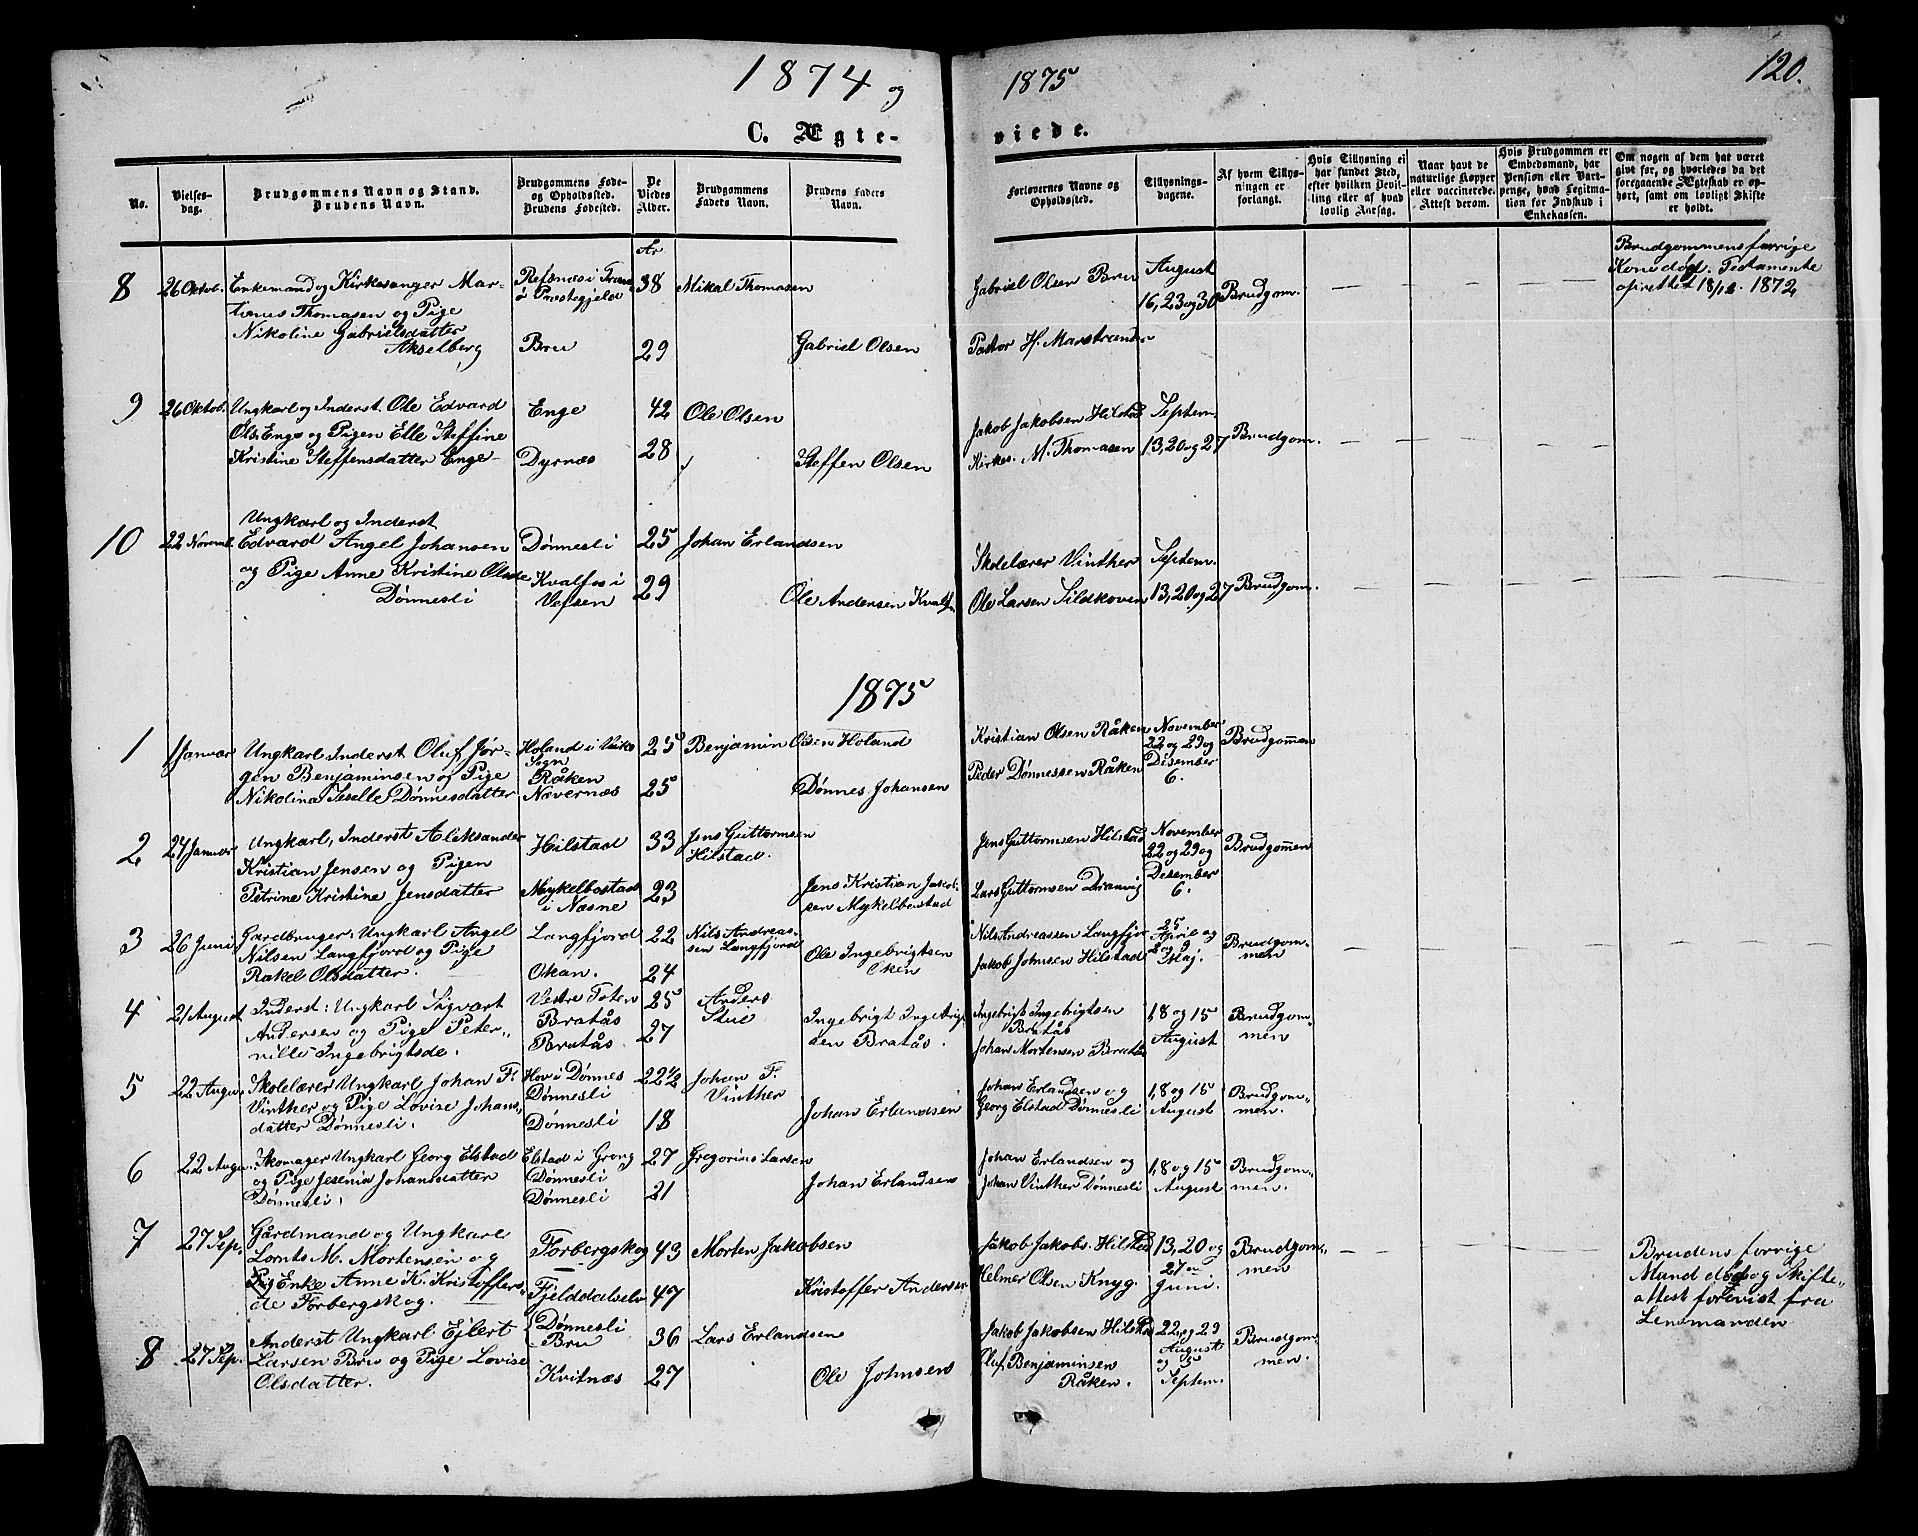 1874 og 1875
120.
C. Ægteviede.
No.
Vielsesdag.
Brudgommens Navn og Stand.
Brudens Navn.
Brudgommens Føde- og Opholdssted.
Brudens Fødested.
De Viedes Alder.
Brudgommens Faders Navn.
Brudens Faders Navn.
Forlovernes Navne og Opholdssted.
Tillysningsdagene.
Af hvem Tillysningen er forlangt.
Hvis Tillysning ei har fundet Sted, efter hvilken Bevilling eller af hvad lovlig Aarsag.
Naar havt de naturlige Kopper eller vaccinerede. Attest derom.
Hvis Brudgommen er Embedsmand, har Pension eller Vartpenge, hvad Legitimation for Indskud i Enkekassen.
Om nogen af dem hat været givt før, og hvorledes da det foregaaende Ægteskab er ophørt, samt om lovligt Skifte er holdt.
Ar
8 26 Oktob. Enkemand og Kirkesanger Mar-
tinus Thomasen og Pige
Nikoline Gabrielsdatter
Akselberg
Refsnæs i
Præstegjeld
Bru
38
29
Mikal Thomasen
Gabriel Olsen
Gabriel Olsen Bru
Pastor H. Marstrander
August
16, 23 og 30
Brudgom.
Brudgommens forrige
Kone død. Testamente
opirettet 18/12 1872
9 26 Oktob. Ungkarl og Inderst. Ole Edvard
Ols. Enge og Pigen Elle Steffine
Kristine Steffensdatter Enge
Enge
Dyrnæs
42
28
Ole Olsen
Steffen Olsen
Jakob Jakobsen Hilstad
Kirkes. M. Thomasen
Septem.
13, 20 og 27
Brudgom.
10 22 Novemb. Ungkarl og Inderst
Edvard Angel Johansen
og Pige Anne Kristine Olsde
Dønnesli
Dønnesli
Kvalfos i
Vefsen
25
29
Johan Erlandsen
Ole Andersen Kvalfos
Skolelærer Vinther
Ole Larsen Sildkoven
Septem.
13, 20 og 27
Brudgom.
1875
1 1 Januar Ungkarl Inderst Oluf Jør-
gen Benjaminsen og Pige
Nikolina Selle Dønnesdatter
Holand i
Sogn
Råken
Nævernæs
25
25
Benjamin Olsen Holand
Dønnes Johansen
Kristian Olsen Råken
Peder Dønnessen Råken
November
22 og 29 og
Desember
6.
Brudgommen
2 24 Januar Ungkarl, Inderst Aleksander
Kristian Jensen og Pigen
Petrine Kristine Jensdatter
Hilstad
Mykelbostad
i Næsne
33
23
Jens Guttormsen
Hilstad.
Jens Kristian Jacob-
sen Mykelbostad
Jens Guttormsen Hilstad
Lars Guttormsen Dranvig
November
22 og 29 og
Desember
6.
Brudgommen
3 26 Juni Gardbruger, Ungkarl Angel
Nilsen Langfjord og Pige
Rakel Olsdatter.
Langfjord
Okan.
22
24
Nils Andreas-
sen Langfjord
Ole Ingebrigtsen
Oken
Nils Andreassen Langfjor
Jakob Johnsen Hilstad
25
April og
2 og 9
Maj.
Brudgom-
men
4 21 August Inderst: Ungkarl Sigvart
Andersen og Pige Peter-
nille Ingebrigtsde.
Vestre Toten
Bratås
Bratås
25
27
Anders
Stue
Ingebrigt Ingebrigt-
sen Bratås.
Ingebrigt Ingebrigtsen
Bratås
Johan Mortensen Bratås
1, 8 og 15
August
Brudgom-
men
5 22 Augu. Skolelærer Ungkarl Johan F.
Vinther og Pige Lovise Johans-
datter Dønnesli.
Hov i Dønnes
Dønnesli
Dønnesli
22 1/2
18
Johan F.
Vinther
Johan Erlandsen
Johan Erlandsen og
Georg Elstad Dønnesli
1, 8 og 15
August
Brudgom-
men.
6 22 Augu. Skomager Ungkarl Georg Elstad
og Pige Jesenia Johansdatter
Dønnesli.
Elstad i Grong
Dønnesli
Dønnesli
27
21
Gregorius Larsen
Johan Erlandsen
Johan Erlandsen og
Johan Vinther Dønnesli
1, 8 og 15
August
Brudgom-
men.
7 27 Sep. Gårdmand og Ungkarl
Lornts M. Mortensen og
Enke Anne K. Kristoffers-
de Forbergskog.
Forbergskog
Fjelddalselv
43
47
Morten Jakobsen
Kristoffer Andersen
Jakob Jakobs. Hilstad
Helmer Olsen Knyg.
13, 20 og
27 
Juni.
Brudgom-
men
Brudens forrige
Mand død og Skifte-
attest forevist fra
Lensmanden
8 27 Sep. Inderst Ungkarl Ejlert
Larsen Bru og Pige Lovise
Olsdatter.
Dønnesli
Bru
Kvitnæs
36
27
Lars Erlandsen
Ole Johnsen
Jakob Jakobsen Hilstad
Oluf Benjaminsen
Råken.
22 og 29
August
og 5
Septem.
Brudgom-
men.